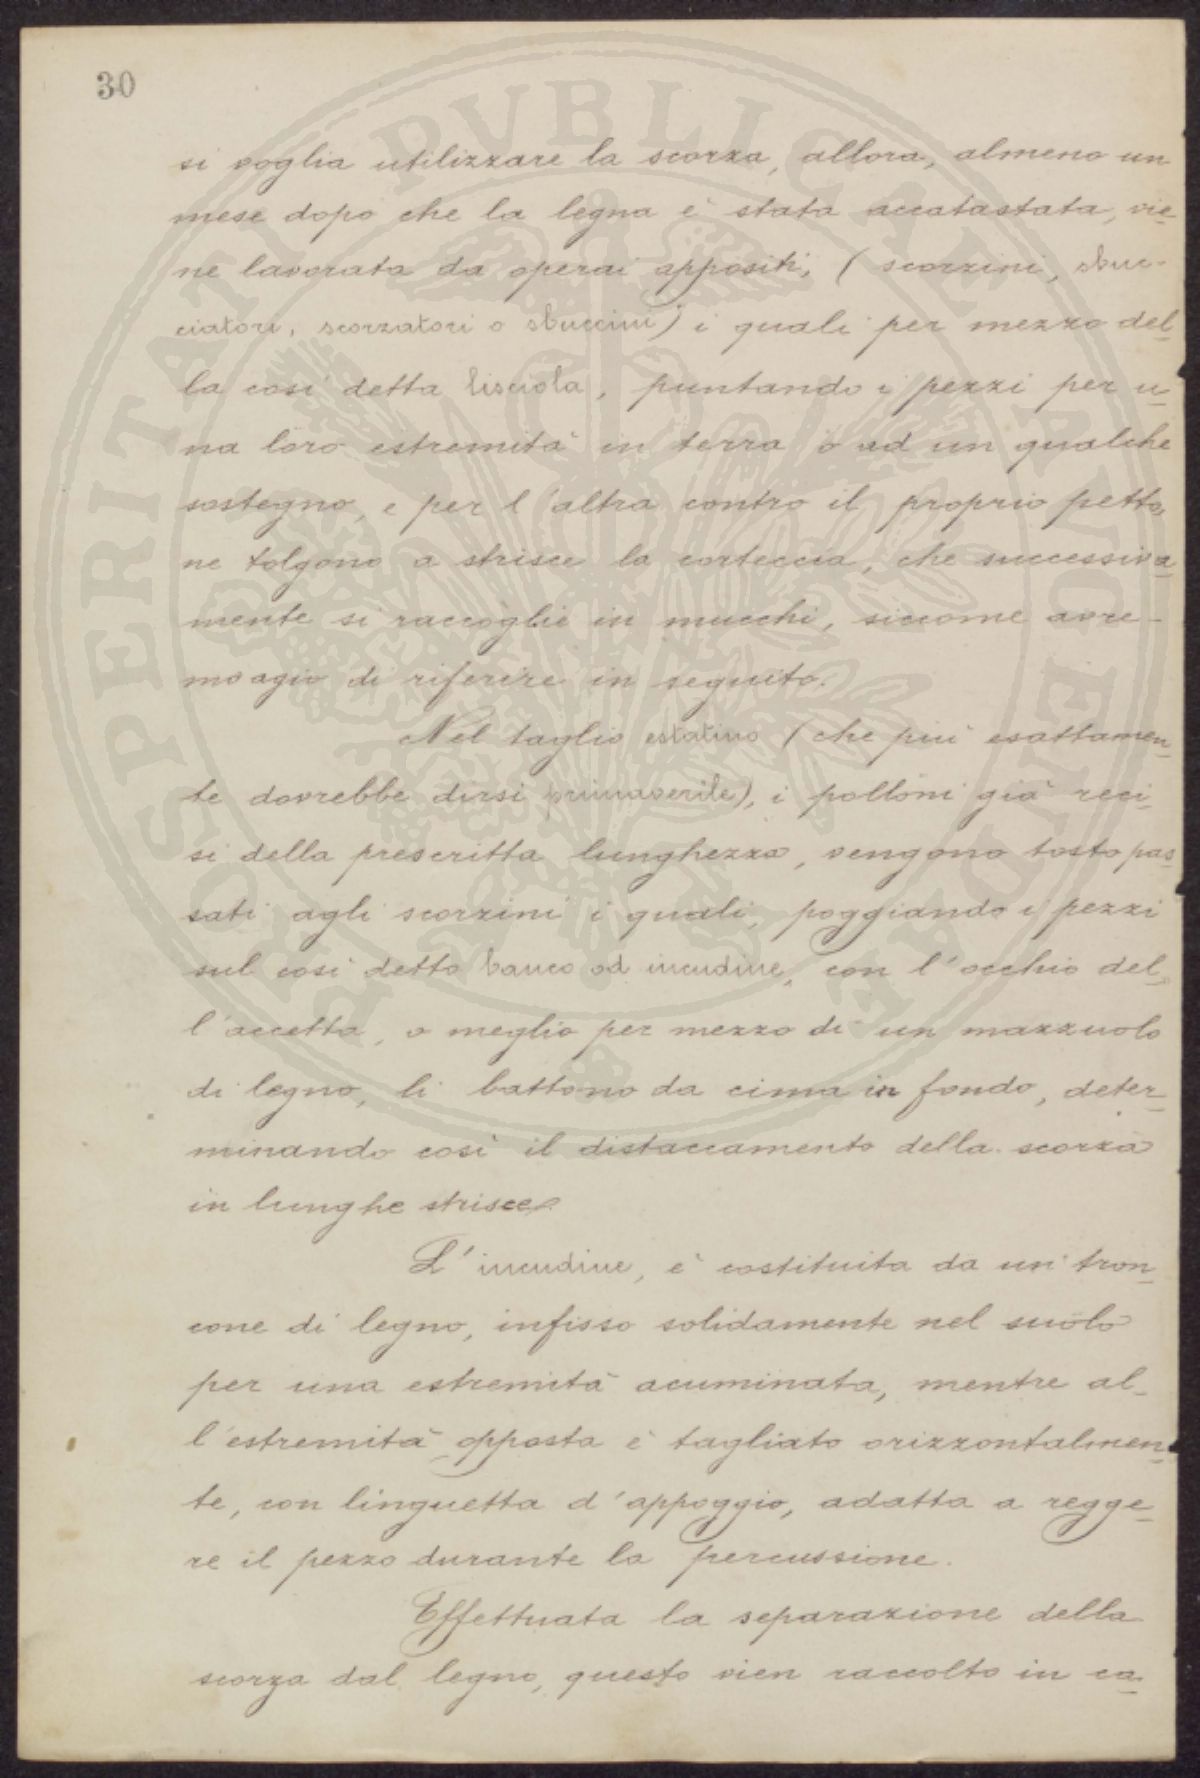 30
si voglia utilizzare la scorza, allora, almeno un
mese dopo che la legna è stata accatastata, vie-
ne lavorata da operai appositi, (scorzini, sbuc-
ciatori, scorzatori o sbuccini) i quali per mezzo del-
la così detta lisciola, puntando i pezzi per u-
na loro estremità in terra o ad un qualche
sostegno, e per l'altra contro il proprio petto,
ne tolgono a strisce la corteccia, che successiva-
mente si raccoglie in mucchi, siccome avre-
mo agio di riferire in seguito.
Nel taglio estatino (che più esattamen-
te dovrebbe dirsi primaverile), i polloni già reci-
si della prescritta lunghezza, vengono tosto pas-
sati agli scorzini i quali, poggiando i pezzi
sul così detto banco od incudine, con l'occhio del-
l'accetta, o meglio per mezzo di un mazzuolo
di legno, li battono da cima in fondo, deter-
minando così il distaccamento della scorza
in lunghe strisce.
L'incudine, è costituita da un tron-
cone di legno, infisso solidamente nel suolo
per una estremità acuminata, mentre al-
l'estremità opposta è tagliato orizzontalmen-
te, con linguetta d'appoggio, adatta a regge-
re il pezzo durante la percussione.
Effettuata la separazione della
scorza dal legno, questo vien raccolto in ca-
PROSPERITATI PVBLICAE AVGENDAE